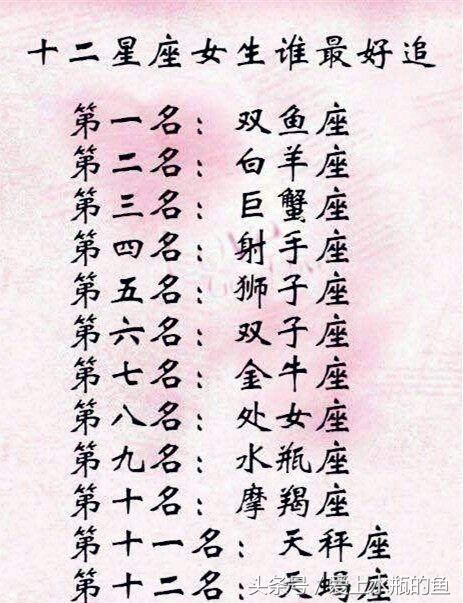 十二星座女生谁最好追
第一名：双鱼座
第二名：白羊座
第三名：巨蟹座
第四名：射手座
第五名：狮子座
第六名：双子座
第七名：金牛座
第八名：处女座
第九名：水瓶座
第十名：摩羯座
第十一名：天秤座
第十二名：天蝎座
头条号 / 爱上水瓶的鱼